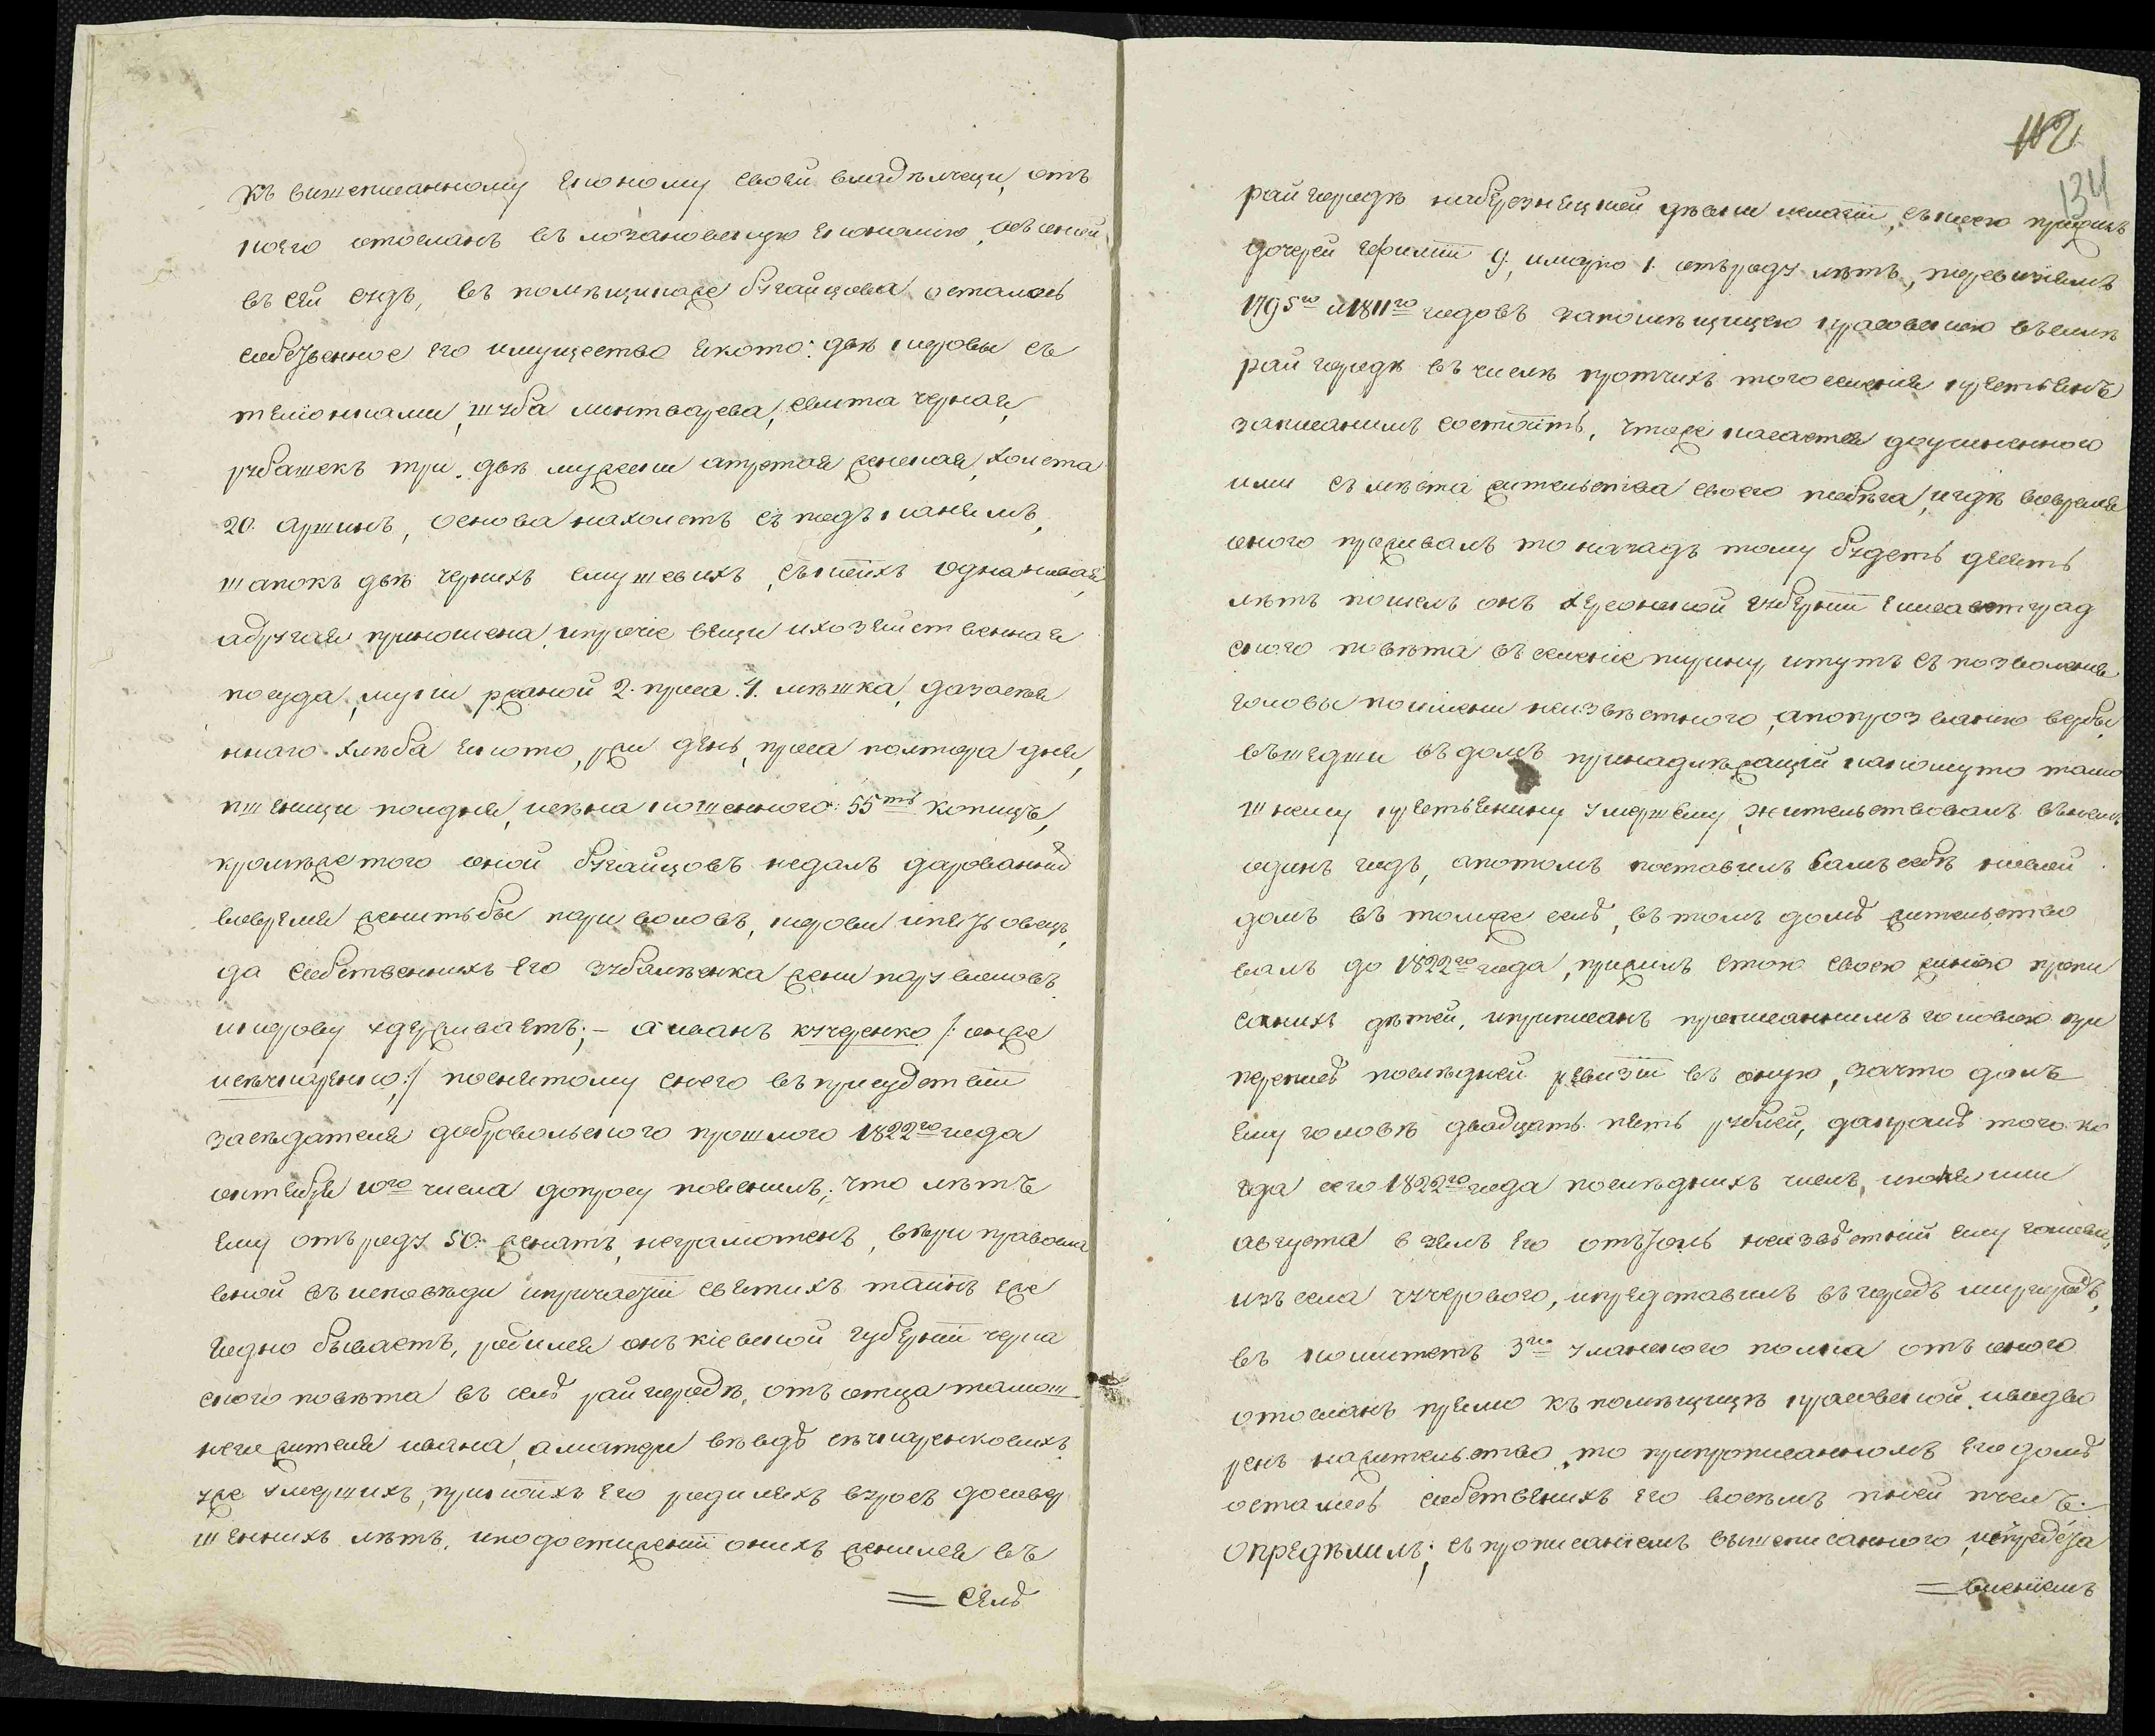 къ вишеписанному економу своей владѣлеци, отъ
коего отосланъ въ лозановскую економію, асъ оной
въ сей судъ, въ помѣщикаже бугайцова осталось
собственное его имущество якото: двѣ коровы съ
теліонками, шуба линтварева, свита черная,
рубашекъ три, двѣ мужскіи атретая женская, холста
20. аршинъ, основа нахолстъ съ подтканямъ,
шапокъ двѣ чернихъ смушевихъ, съкоихъ одна новая,
адругая приношена, ипрочіе вещи ихозяйственная
посуда, муки ржаной 2. проса 4. мѣшка, дазасѣя
нного хлѣба якото, ржи день, проса полтора дня,
пшеници полдня, сѣна кошенного 55ть копицъ,
кромѣжетого оной бугайцовъ недалъ дарованній
вовремя женитьбы пари воловъ, корови ипять овецъ,
да собственнихъ его зубаленка жени пару воловъ
икорову удерживаетъ; – а иванъ кучеренко /: онже
исѣчкаренко :/ поснятому снего въ присудствіи
засѣдателя добровольского прошлого 1822го года
октября 10го числа допросу пояснилъ; что лѣтъ
ему отъ роду 50. женатъ, неграмотенъ, вѣри православ
ской въ исповѣди ипричастіи святихъ таинъ еже
годно бываетъ, родился онъ кіевской губерніи черка
ского повѣта въ селѣ райгородѣ, отъ отца тамош
него жителя ивана, аматери сѣчкаренковихъ
уже умершихъ, прикоихъ его родиляхъ взросъ досовер
шеннихъ лѣтъ, иподостиженіи онихъ женился въ
= селѣ
112
134
райгородѣ съкоею прижилъ
дочерей Ефимію 9, имарю 1. отъроду лѣтъ, поревизіямъ
1795го и1811го годовъ запомѣщицею красовскою въселѣ
райгородѣ въ числѣ протчихъ того селенія крестьянъ
записанимъ состоитъ, чтоже касается доучиненного
ими съ мѣста жительства своего побѣга, игдѣ вовремя
оного проживалъ то назадъ тому будетъ десять
лѣтъ пошелъ онъ херсонской губерніи елисаветград
ского повѣта въ селеніе итутъ съ позволенія
головы поимени неизвѣстного, апопрозванію вербы,
въшедши въ домъ принадлежащій какомуто тамо
шнему крестьянину умершему, жительствовалъ въ немъ
одинъ годъ, апотомъ поставилъ самъ себѣ новой
домъ въ томже селѣ, въ томъ домѣ жительство
валъ до 1822го года, прижилъ стою своею женою пропи
саннихъ дѣтей, иприписанъ прописаннимъ головою при
переписѣ послѣдней ревизіи въ оную, зачто далъ
ему головѣ двадцать пять рублей, дапромѣ того ко
гда сего 1822го года послѣднихъ числъ, июля или
августа взялъ его отътоль неизвѣстній ему
изъ села ипредставилъ въ городъ миргородъ,
въ комитетъ 3го уланского полка отъ оного
отосланъ прямо къ помѣщицѣ красовской, иводво
ренъ нажительство, то припрописанномъ его домѣ
осталось собственихъ его восѣмъ пней пчелъ.
Опредѣлилъ; съ прописаніемъ вышеписанного,
= вленіемъ